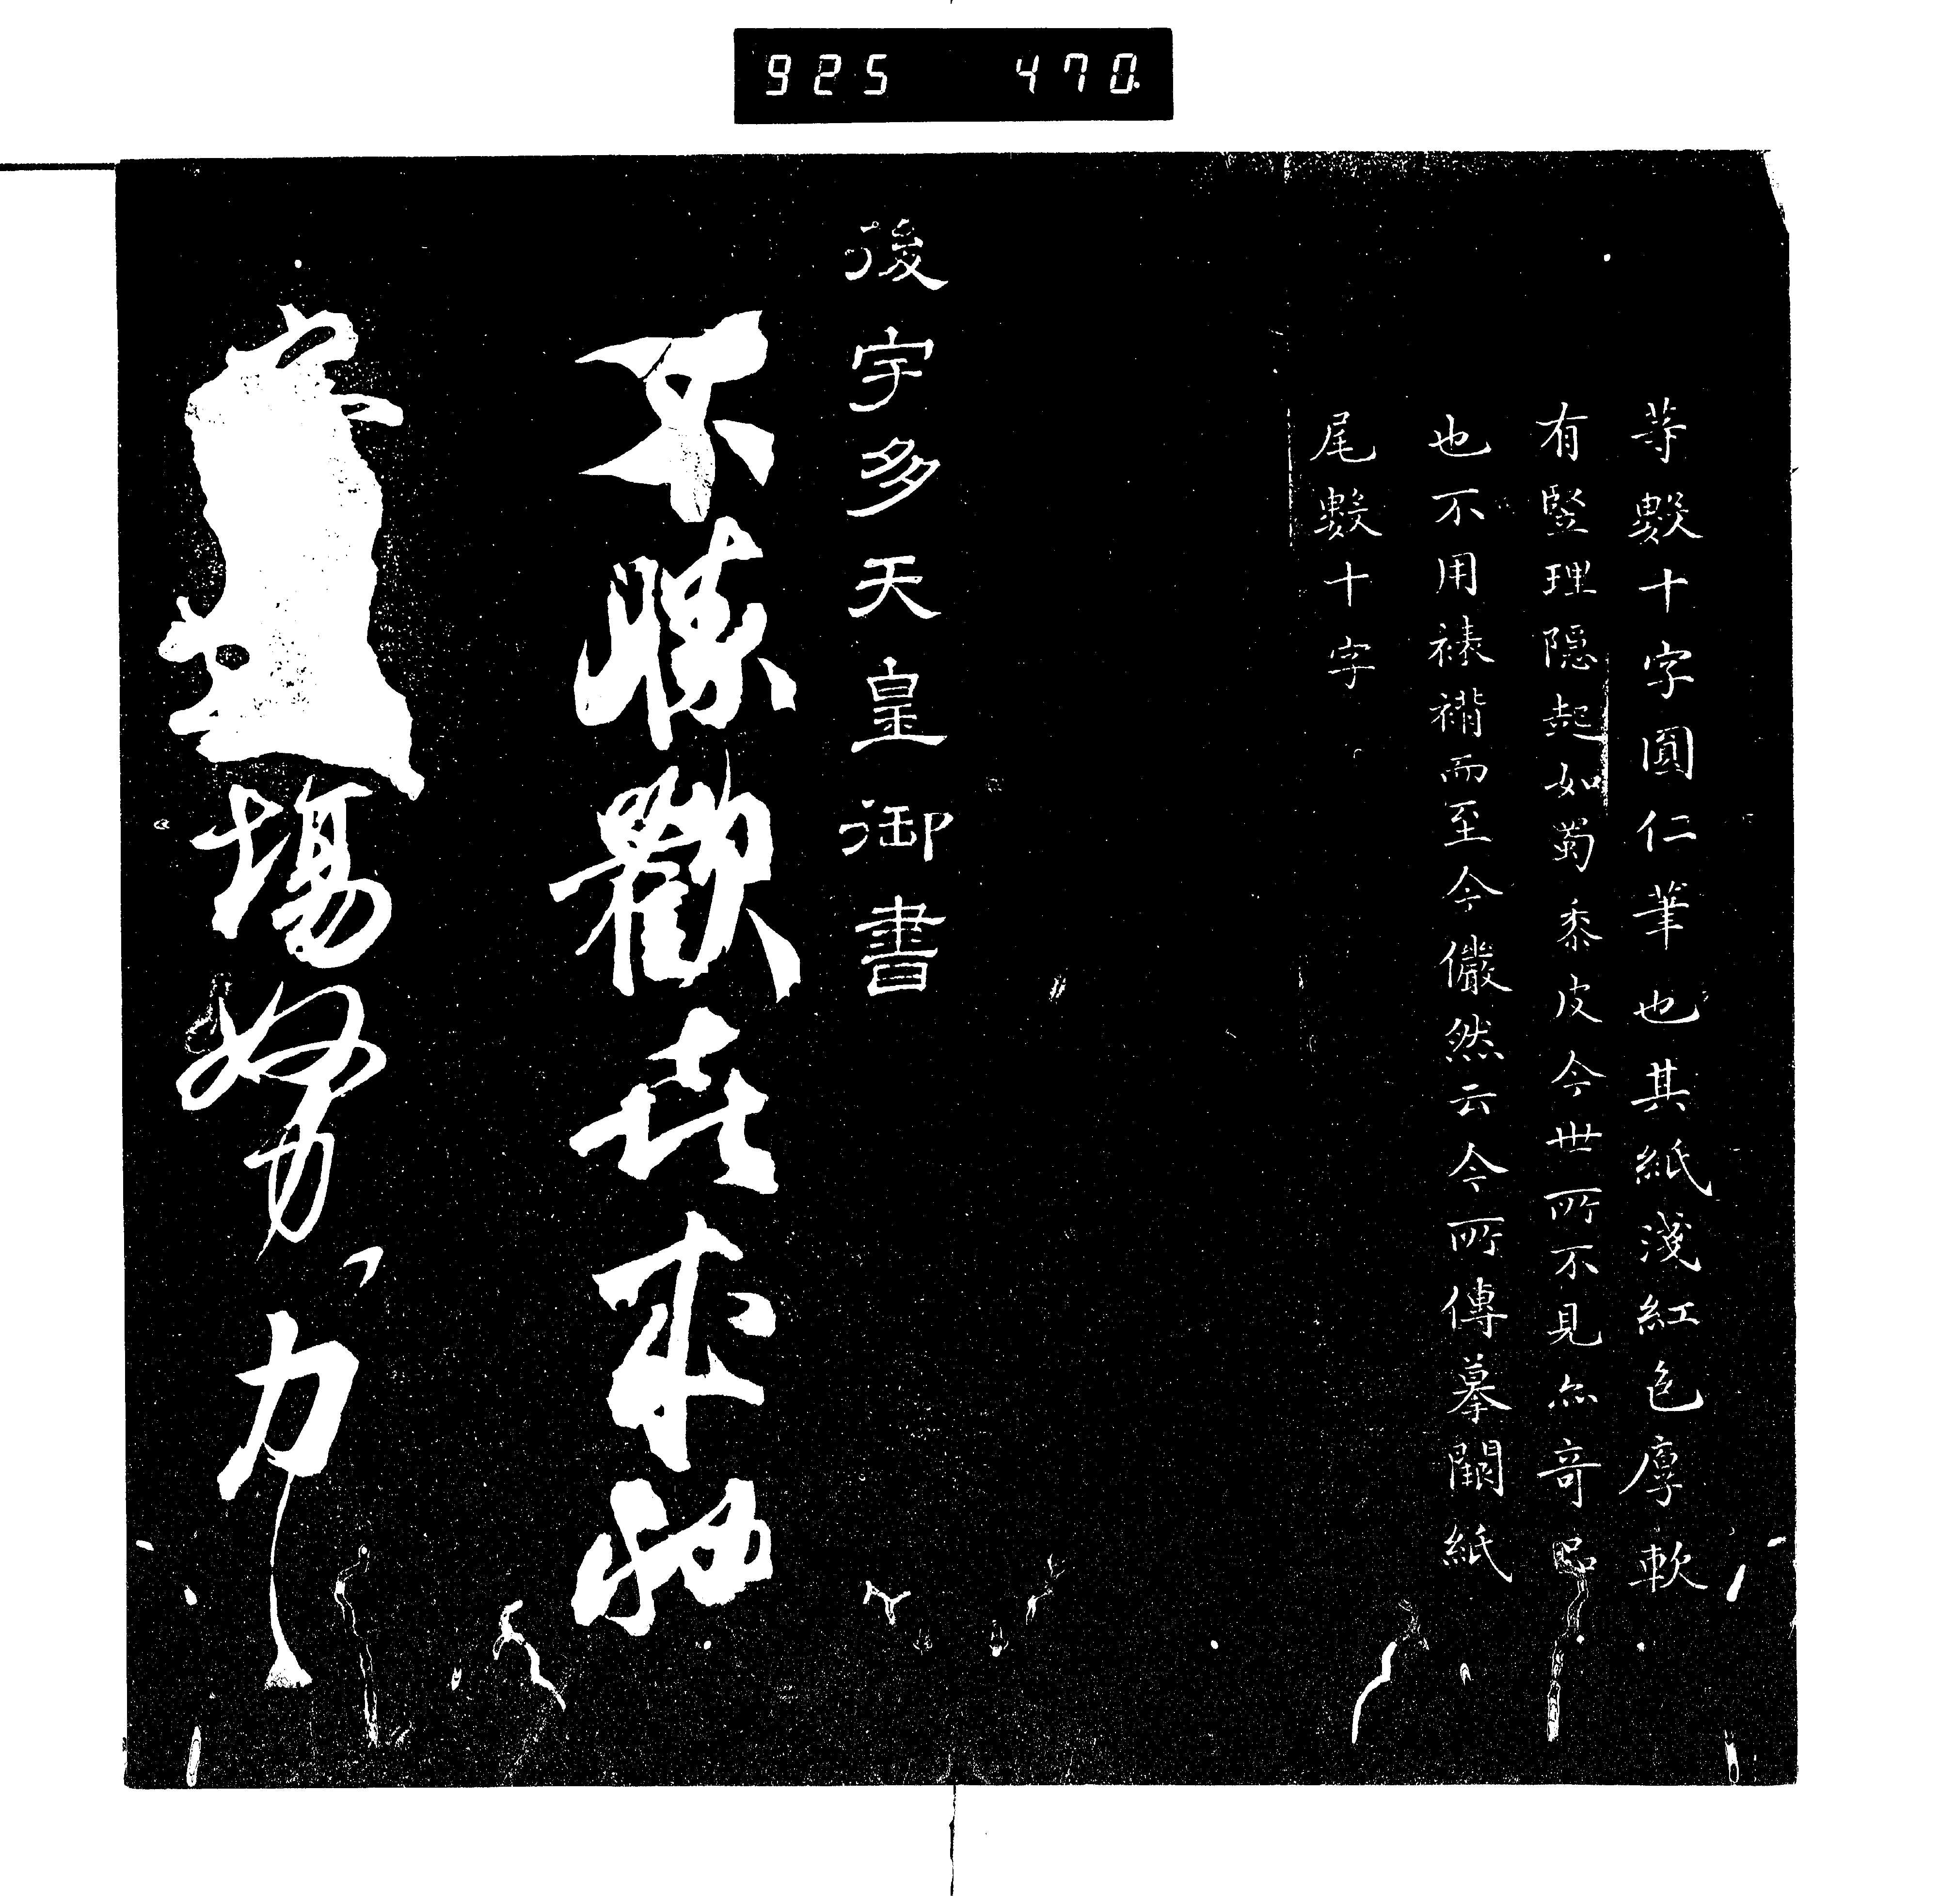 925 470.
等數十字圓仁筆也其紙淺紅色厚軟
有竪理隠起如蜀黍皮今世所不見亦奇品
也不用裱褙而至今儼然云今所傳摹闕紙
尾數十字
後宇多天皇御書
不勝歡喜來
場努力